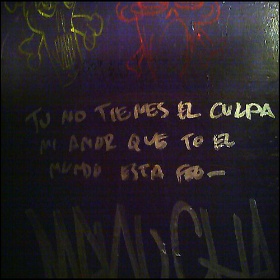 TU NO TIENES EL CULPA
MI AMOR QUE TO EL
MUNDO ESTA FEO—